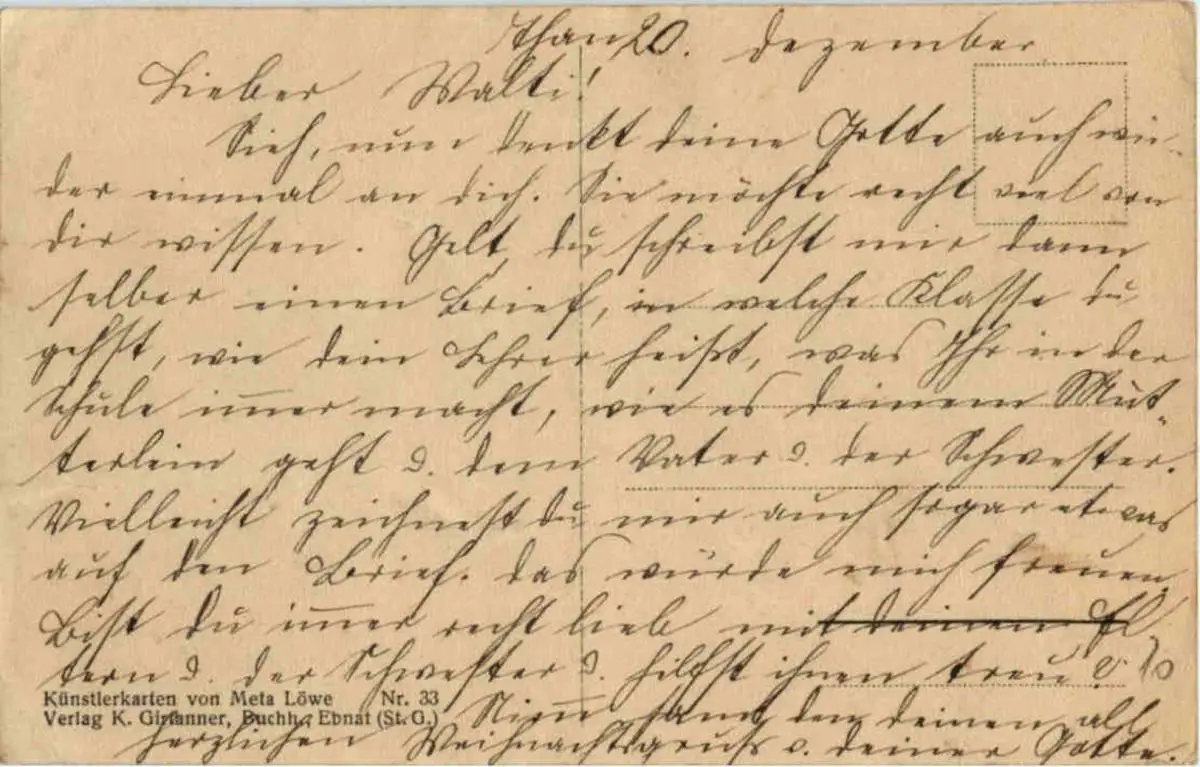 Than, 20. Dezember
Lieber Walti!
Sieh, nun denkt deine Gotte auch wie-
der einmal an dich. Sie möchte recht viel von
dir wissen. Gelt, du schreibst mir dann
selber einen Brief, in welche Klasse du
gehst, wie dein Lehrer heißt, was Ihr in der
Schule im̅er macht, wie es deinem Müt-
terlein geht u. dem Vater u. der Schwester.
Vielleicht zeichnest du mir auch sogar etwas
auf den Brief. Das würde mich freuen.
Bist du im̅er recht lieb mit deinen El
tern u. der Schwester u. hilfst ihnen treu?
Künstlerkarten von Meta Löwe Nr. 33
Verlag K. Girtanner, Buchh., Ebnat (St. G.)
Nim̅ samt den deinen all
herzlichen Weihnachtsgruss v. deiner Gotte.